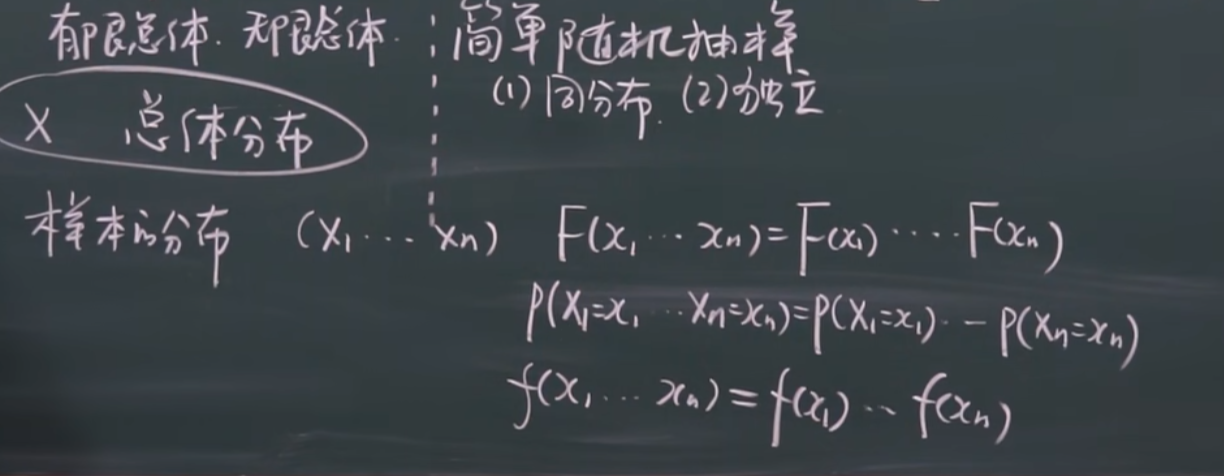 有限总体. 无限总体.
简单随机抽样
(1) 同分布. (2) 独立
X 总体分布
样本的分布 (X₁ ··· Xn) F(x₁ ··· xn) = F(x₁) ···· F(xn)
P(X₁=x₁ ··· Xn=xn) = P(X₁=x₁) ·-- P(Xn=xn)
f(x₁ ··· xn) = f(x₁) -- f(xn)